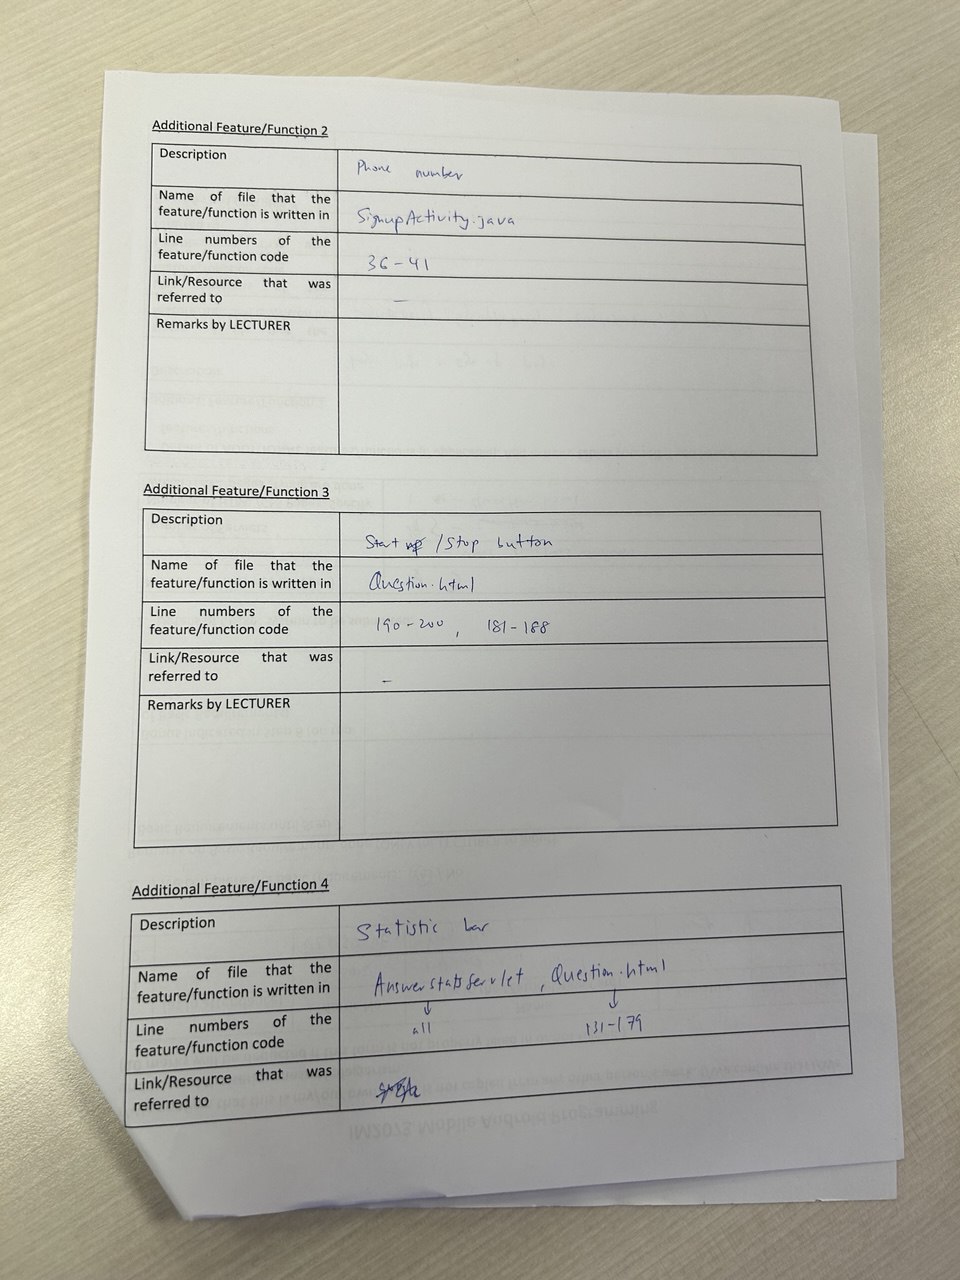 Additional Feature/Function 2
Description
Phone number
Name of file that the
feature/function is written in
SignupActivity.java
Line numbers of the
feature/function code
36-41
Link/Resource that was
referred to
-
Remarks by LECTURER
Additional Feature/Function 3
Description
Start /Stop button
Name of file that the
feature/function is written in
Question.html
Line numbers of the
feature/function code
190-200, 181-188
Link/Resource that was
referred to
-
Remarks by LECTURER
Additional Feature/Function 4
Description
Statistic bar
Name of file that the
feature/function is written in
AnswerstatsServlet, Question.html
Line numbers of the
feature/function code
↓ ↓
all 131-179
Link/Resource that was
referred to
IM2073 Mobile Android Programming